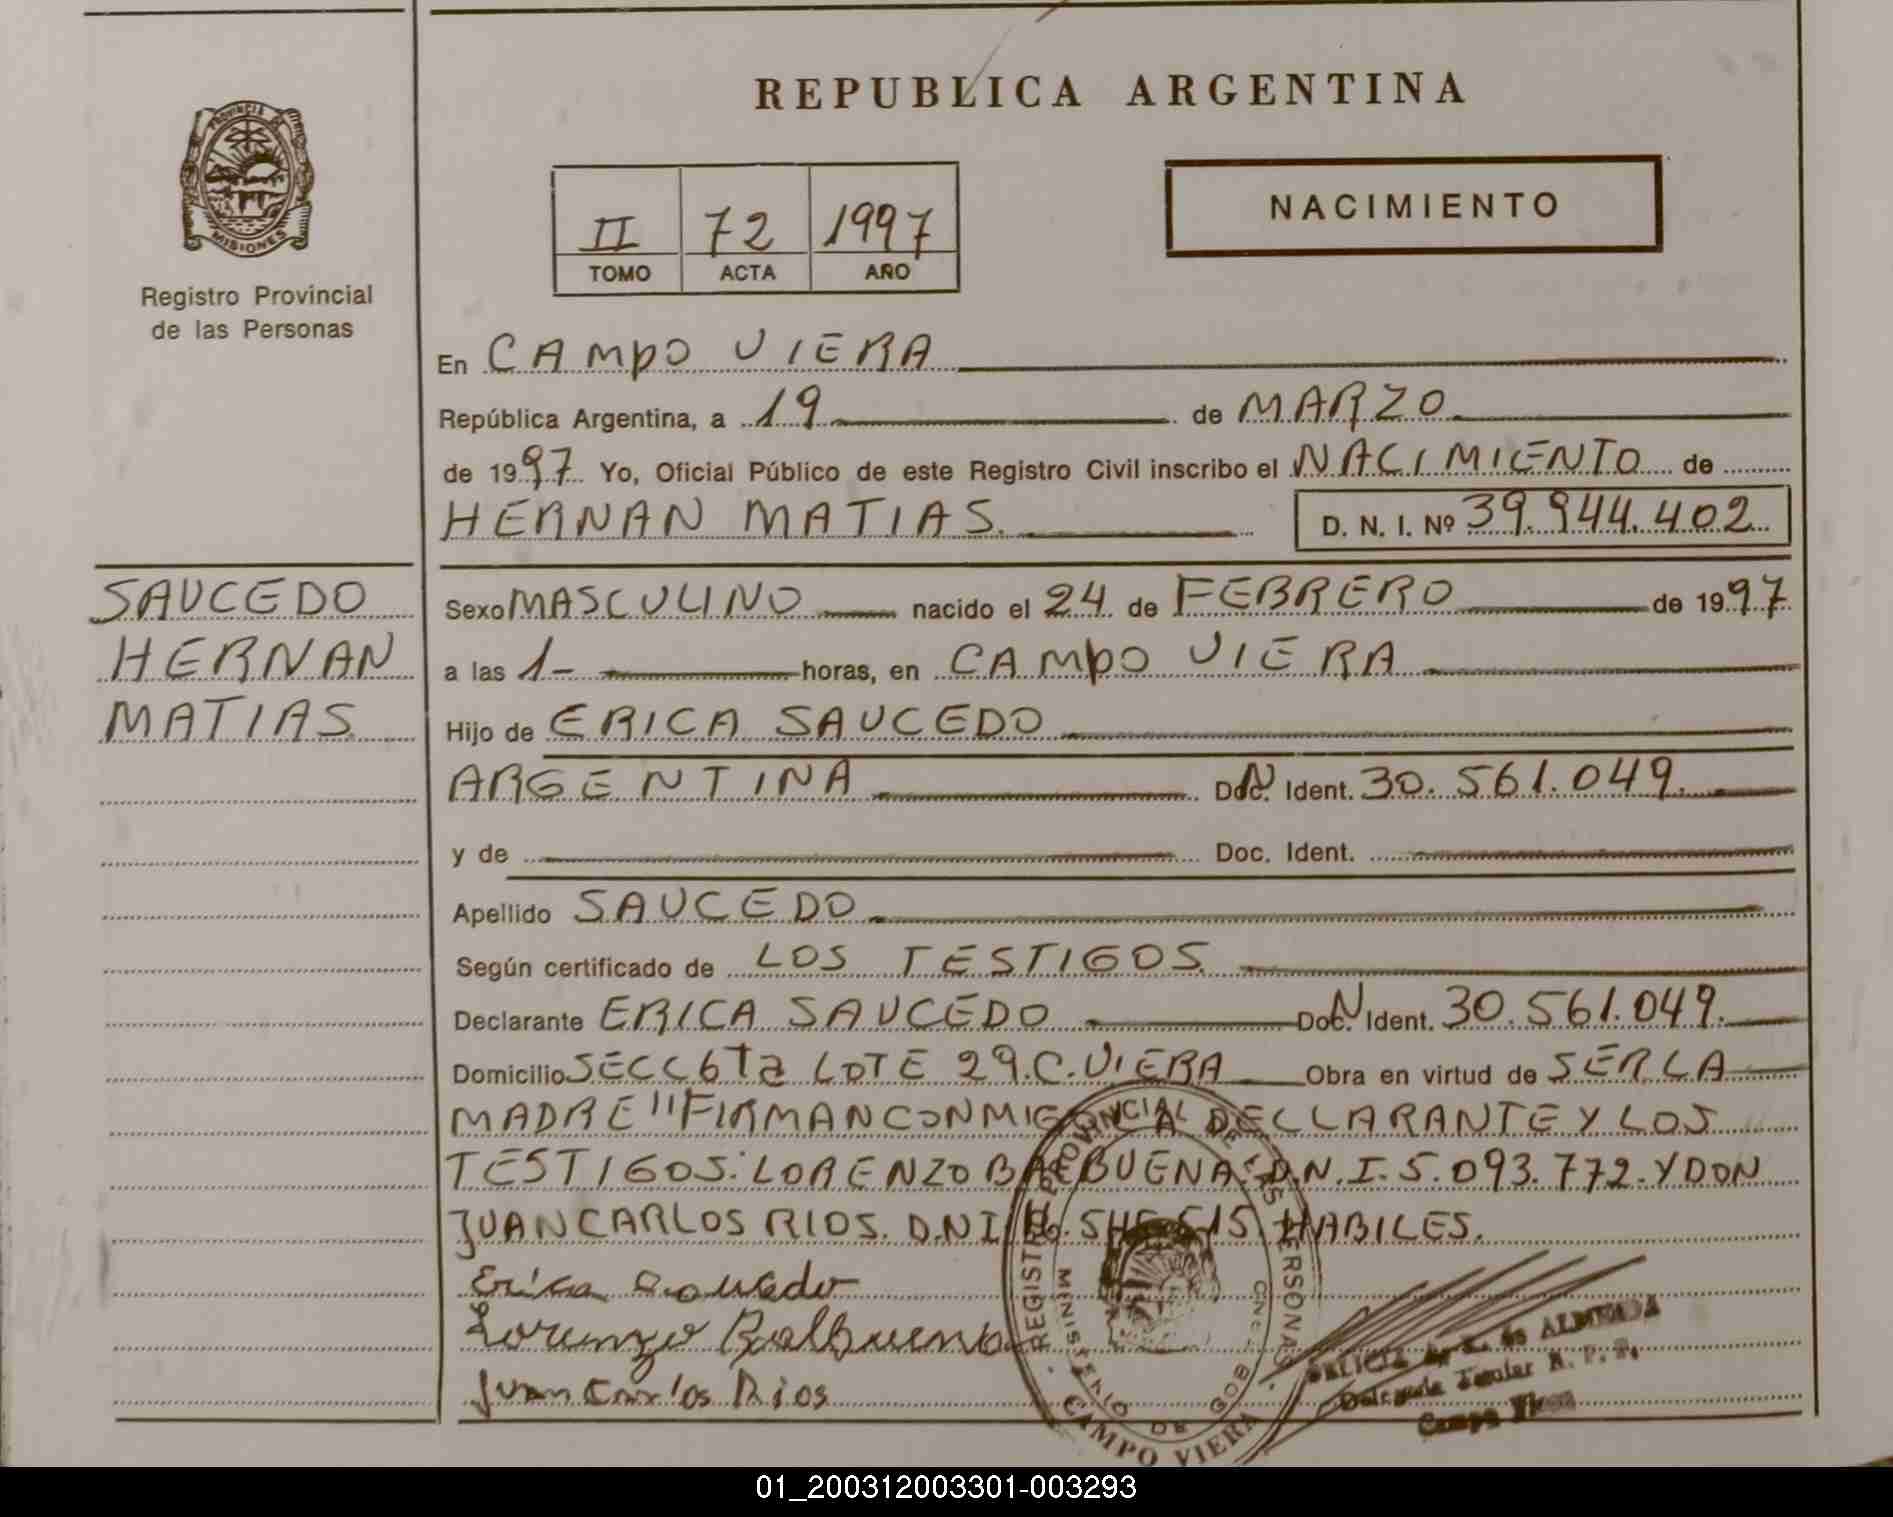 REPUBLICA ARGENTINA
PROVINCIA DE
MISIONES
Registro Provincial
de las Personas
II 72 1997
TOMO ACTA AÑO
NACIMIENTO
En CAMPO VIERA
República Argentina, a 19 de MARZO
de 1997 Yo, Oficial Público de este Registro Civil inscribo el NACIMIENTO de
HERNAN MATIAS. D. N. I. Nº 39.944.402
SAUCEDO
HERNAN
MATIAS
Sexo MASCULINO nacido el 24 de FEBRERO de 1997
a las 1- horas, en CAMPO VIERA
Hijo de ERICA SAUCEDO
ARGENTINA Doc. Ident. 30.561.049.
y de Doc. Ident.
Apellido SAUCEDO
Según certificado de LOS TESTIGOS
Declarante ERICA SAUCEDO Doc. Ident. 30.561.049.
Domicilio SECC 6Ta LOTE 29.C.VIERA Obra en virtud de SER LA
MADRE" FIRMAN CONMIGO LA DECLARANTE Y LOS
TESTIGOS: LORENZO BALBUENA. D.N.I. 5.093.772. Y DON
JUAN CARLOS RIOS. D.N.I. HABILES.
Erica Saucedo
Lorenzo Balbuena
Juan Carlos Rios
REGISTRO PROVINCIAL DE LAS PERSONAS
MINISTERIO DE GOB
CAMPO VIERA
ALMEADA
Delegada Titular R. P. P.
Campo Viera
01_200312003301-003293